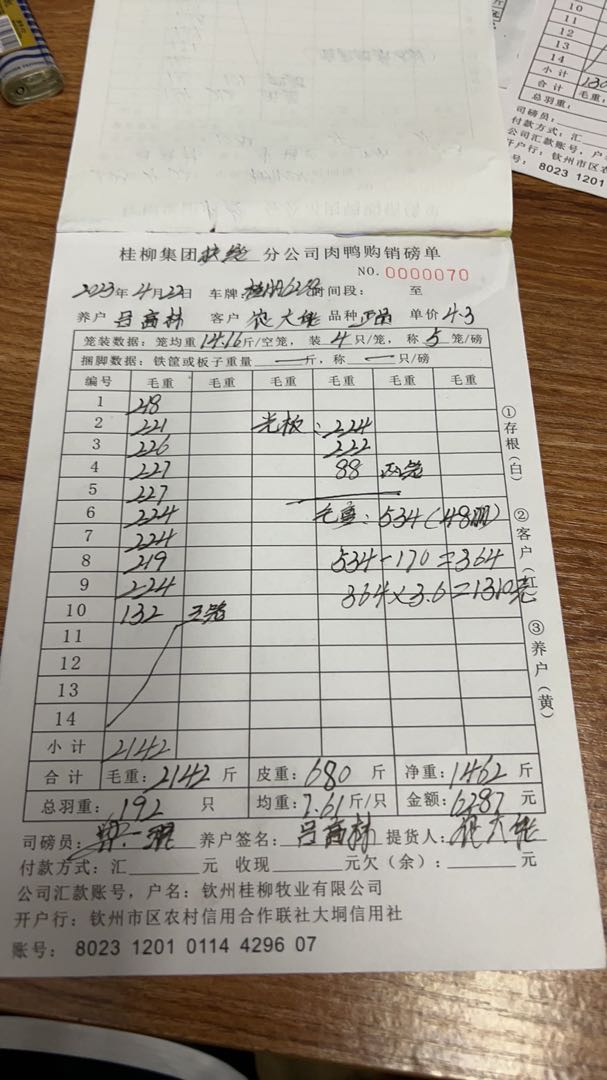 10
11
12
13
14
小 计
合 计 毛重：130
总羽重：
司磅员：
付款方式：汇
公司汇款账号，户
开户行：钦州市区农
号： 8023 1201
桂柳集团扶绥分公司肉鸭购销磅单
NO.0000070
2023年4月22日 车牌 时间段： 至
养户 吕高林 客户 大雄 品种 单价 4.3
笼装数据：笼均重14.16斤/空笼，装4只/笼，称5笼/磅
捆脚数据：铁筐或板子重量—斤，称—只/磅
编号 毛重 毛重 毛重 毛重 毛重 毛重
1 218
2 221 光板：224
3 226 222
4 227 88 两笼
5 227
6 224 毛重：534（48羽）
7 224
8 219 534-170=364
9 224 364×3.6=1310元
10 132 三笼
11
12
13
14
小 计 2142
①存根（白）
②客户（红）
③养户（黄）
合 计 毛重：2142斤 皮重：680斤 净重：1462斤
总羽重：192只 均重：7.61斤/只 金额：6287元
司磅员： 养户签名：吕高林 提货人：大雄
付款方式：汇 元 收现 元欠（余）： 元
公司汇款账号，户名：钦州桂柳牧业有限公司
开户行：钦州市区农村信用合作联社大垌信用社
账号： 8023 1201 0114 4296 07